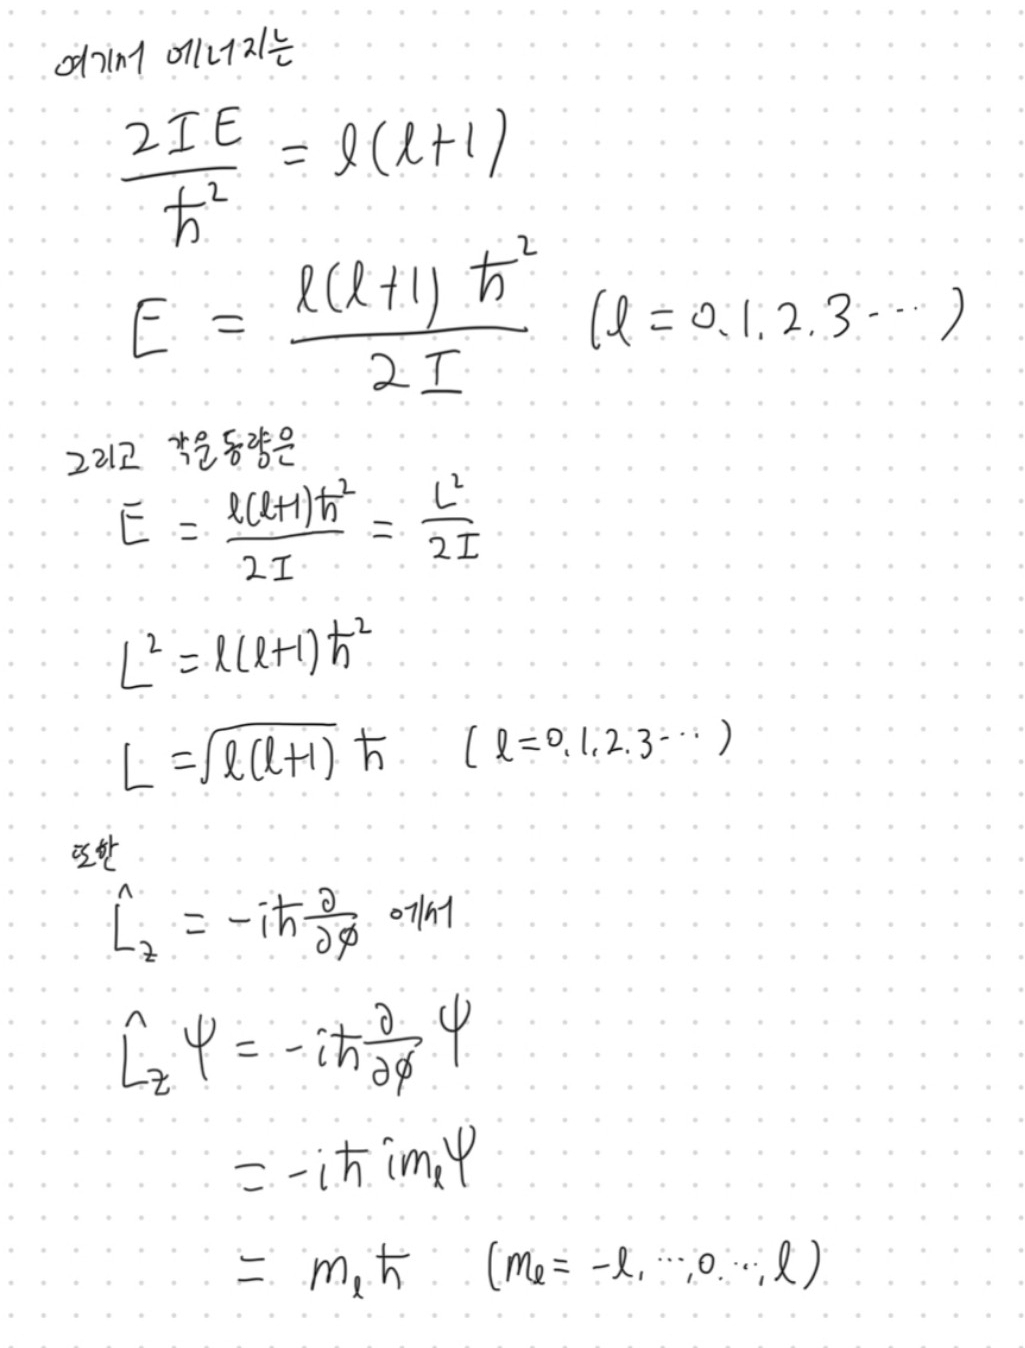 여기서 에너지는
2IE/ħ² = l(l+1)
E = l(l+1)ħ²/2I (l = 0.1.2.3···)
그리고 각운동량은
E = l(l+1)ħ²/2I = L²/2I
L² = l(l+1)ħ²
L = √l(l+1) ħ (l=0.1.2.3···)
또한
L̂z = -iħ ∂/∂φ 에서
L̂z ψ = -iħ ∂/∂φ ψ
= -iħ im_l ψ
= m_l ħ (m_l = -l, ···,0.···, l)